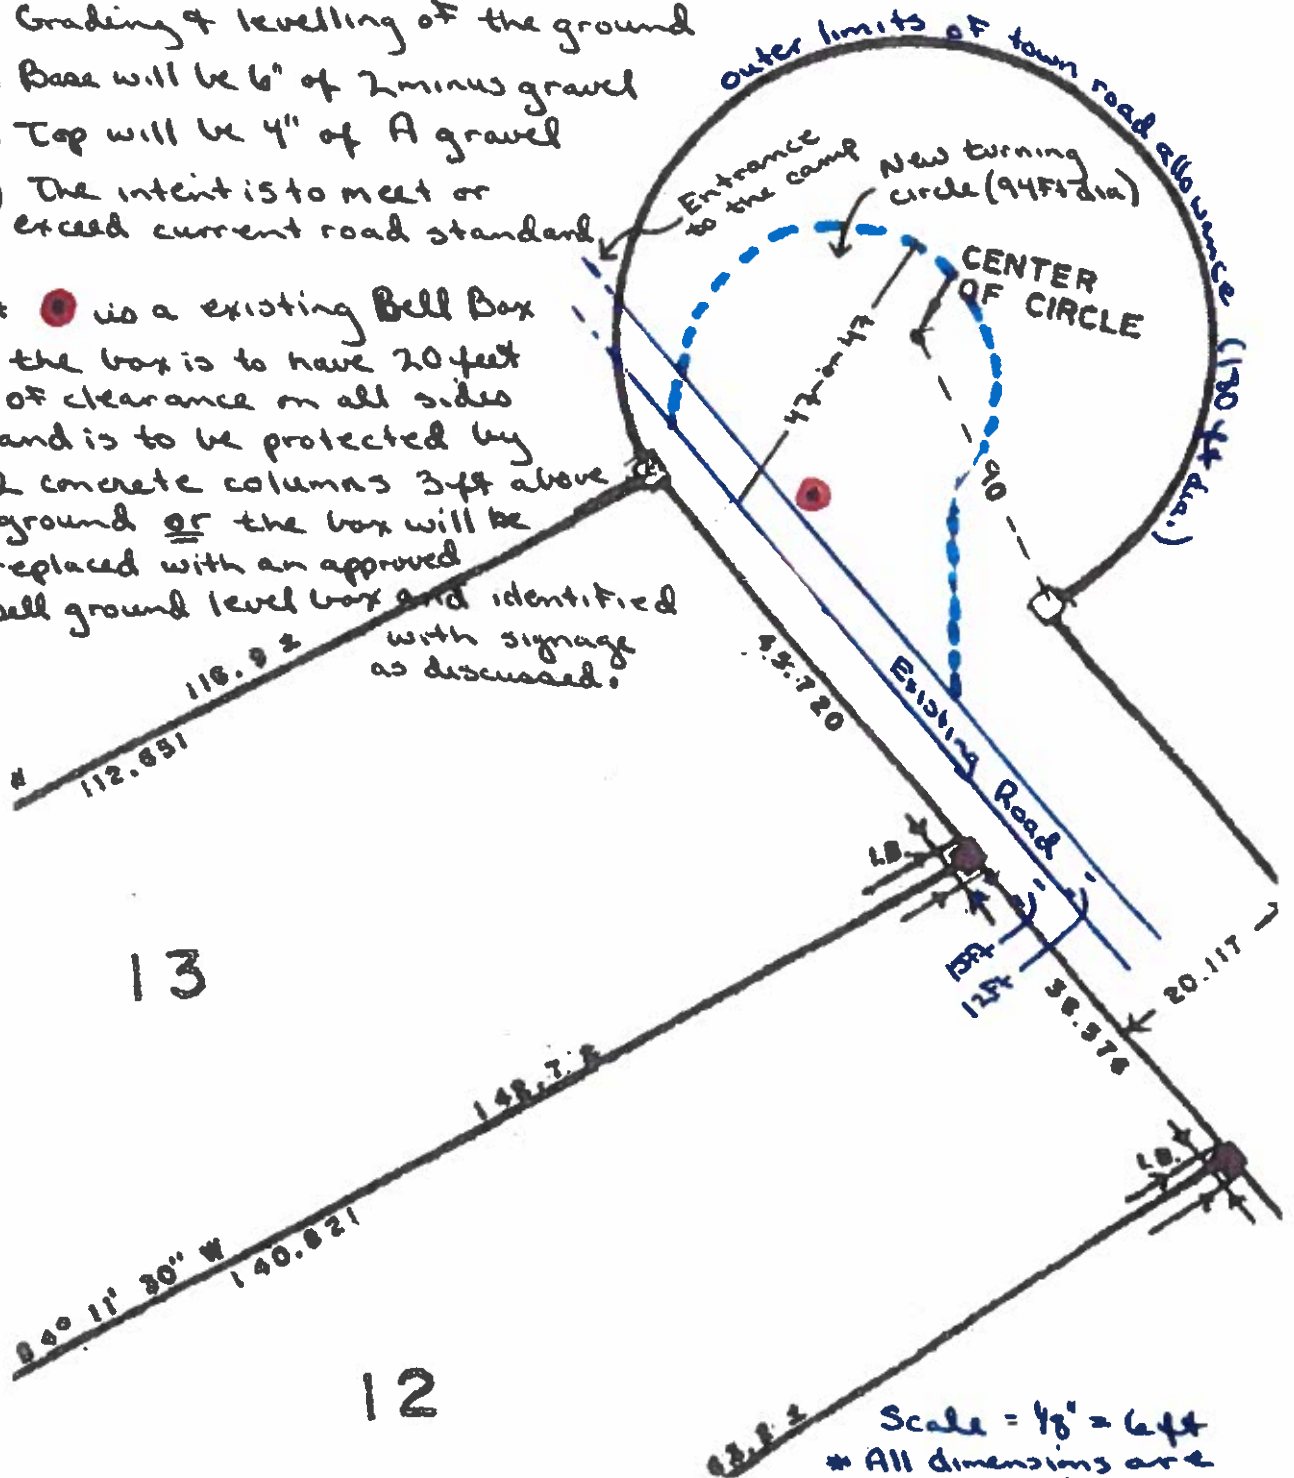 Grading & levelling of the ground
Base will be 6" of 2 minus gravel
Top will be 4" of A gravel
) The intent is to meet or
exceed current road standard
is a existing Bell Box
the box is to have 20 feet
of clearance on all sides
and is to be protected by
2 concrete columns 3ft above
ground or the box will be
replaced with an approved
Bell ground level box and identified
with signage
as discussed.
outer limits of town road allowance (180 ft dia.)
Entrance
to the camp
New turning
circle (94Ft dia)
CENTER
OF CIRCLE
47 or 47
90
118.9 ±
112.851
45.720
Existing Road
I.B.
15ft
12ft
20.117
38.576
13
148.7 ±
140.821
4° 11' 30" W
I.B.
12
Scale = 1/8" = 6 ft
* All dimensions are